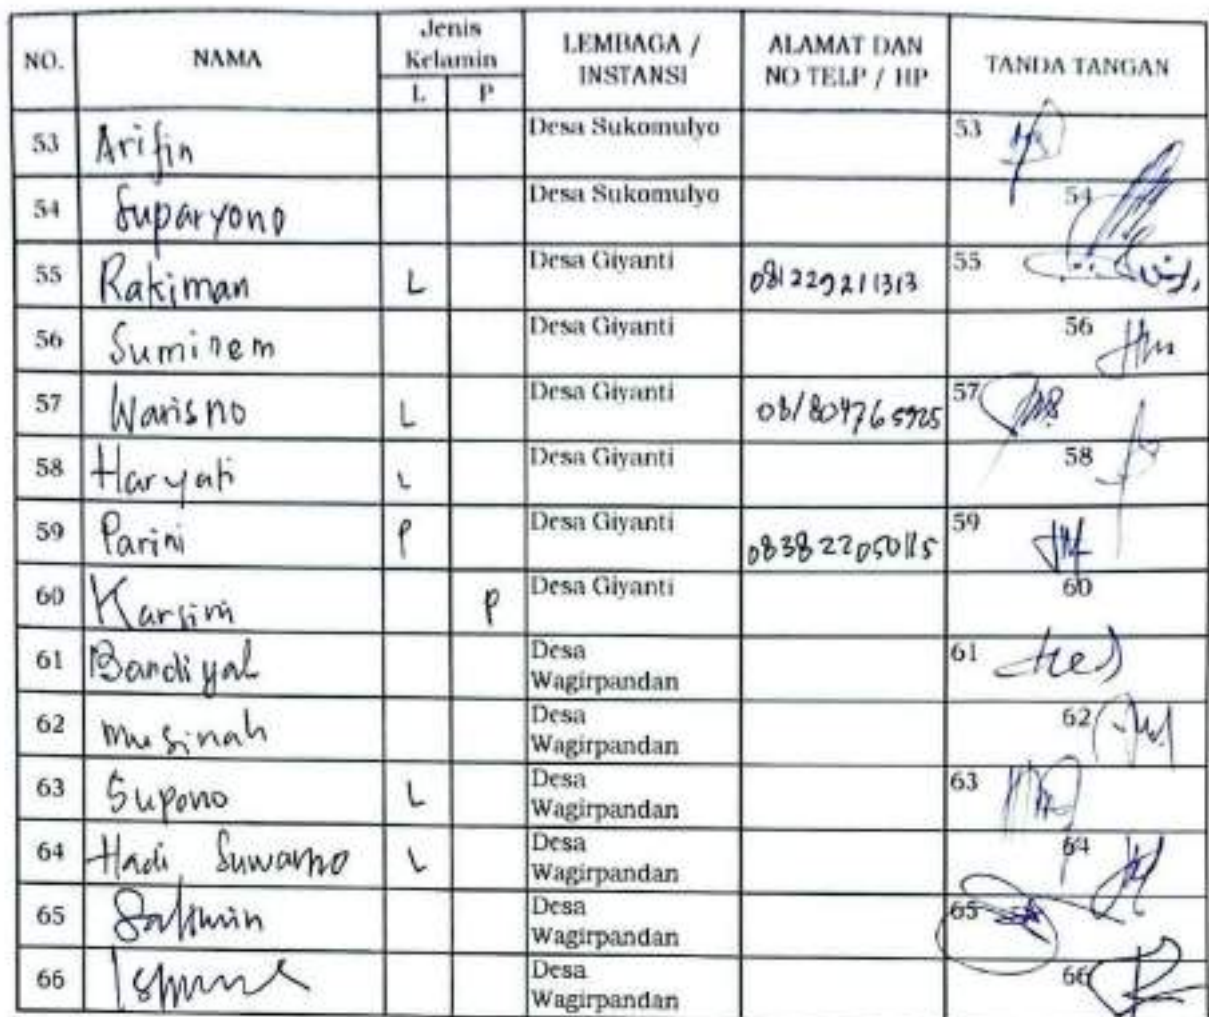 NO. NAMA Jenis Kelamin LEMBAGA / INSTANSI ALAMAT DAN NO TELP / HP TANDA TANGAN
L P
53 Arifin Desa Sukomulyo 53
54 Suparyono Desa Sukomulyo 54
55 Rakiman L Desa Giyanti 081229211313 55
56 Suminem Desa Giyanti 56
57 Warisno L Desa Giyanti 081804765925 57
58 Haryati L Desa Giyanti 58
59 Parini P Desa Giyanti 083822050115 59
60 Karsini P Desa Giyanti 60
61 Desa Wagirpandan 61
62 Musinah Desa Wagirpandan 62
63 Supono L Desa Wagirpandan 63
64 Hadi Suwarno L Desa Wagirpandan 64
65 Desa Wagirpandan 65
66 Desa Wagirpandan 66